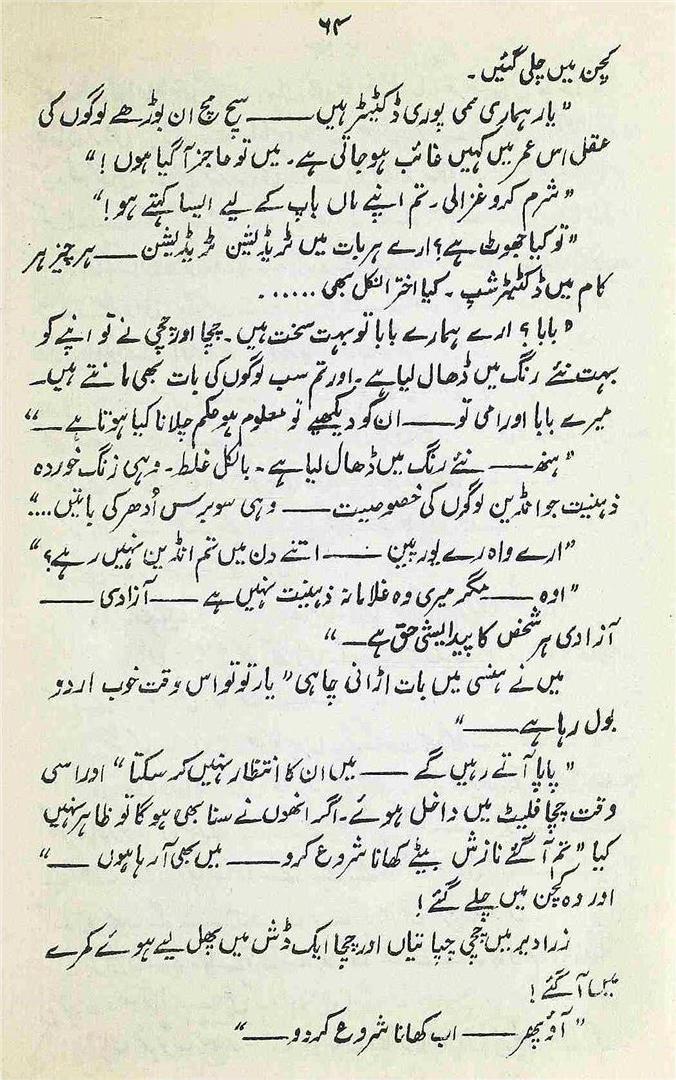 ۶۴
کچن میں چلی گئیں۔
"یار ہماری ممی پوری ڈکٹیٹر ہیں ـــــ سچ مچ ان بوڑھے لوگوں کی
عقل اس عمر میں کہیں غائب ہو جاتی ہے۔ میں تو عاجز آ گیا ہوں!"
"شرم کرو غزالی۔ تم اپنے ماں باپ کے لیے ایسا کہتے ہو!"
"تو کیا جھوٹ ہے؟ ارے ہر بات میں ٹریڈیشن ٹریڈیشن ـــــ ہر چیز ہر
کام میں ڈکٹیٹر شپ۔ کیا انکل بھی ......
"بابا؟ ارے ہمارے بابا تو بہت سخت ہیں۔ چچا اور چچی نے تو اپنے کو
بہت نئے رنگ میں ڈھال لیا ہے۔ اور تم سب لوگوں کی بات بھی مانتے ہیں۔
میرے بابا اور امی تو ـــــ ان کو دیکھیے تو معلوم ہو حکم چلانا کیا ہوتا ہے ـــ"
"ہنھ ـــــ نئے رنگ میں ڈھال لیا ہے۔ بالکل غلط۔ وہی زنگ خوردہ
ذہنیت جو انڈین لوگوں کی خصوصیت ـــــ وہی سو برس اُدھر کی باتیں...."
"ارے واہ رے یورپین ـــــ اتنے دن میں تم انڈین نہیں رہے؟"
"اوہ ـــــ مگر میری وہ غلامانہ ذہنیت نہیں ہے ـــــ آزادی ـــــ
آزادی ہر شخص کا پیدایشی حق ہے ـــ"
میں نے ہنسی میں بات اڑانی چاہی "یار تو تو اس وقت خوب اردو
بول رہا ہے ـــــ"
"پاپا آتے رہیں گے ـــــ میں ان کا انتظار نہیں کر سکتا" اور اسی
وقت چچا فلیٹ میں داخل ہوئے۔ اگر انھوں نے سنا بھی ہوگا تو ظاہر نہیں
کیا "تم آ گئے نازش بیٹے کھانا شروع کرو ـــــ میں بھی آ رہا ہوں ـــــ"
اور وہ کچن میں چلے گئے!
ذرا دیر میں چچی چپاتیاں اور چچا ایک ڈش میں پھل لیے ہوئے کمرے
میں آ گئے!
"آؤ پھر ـــــ اب کھانا شروع کر دو ـــــ"